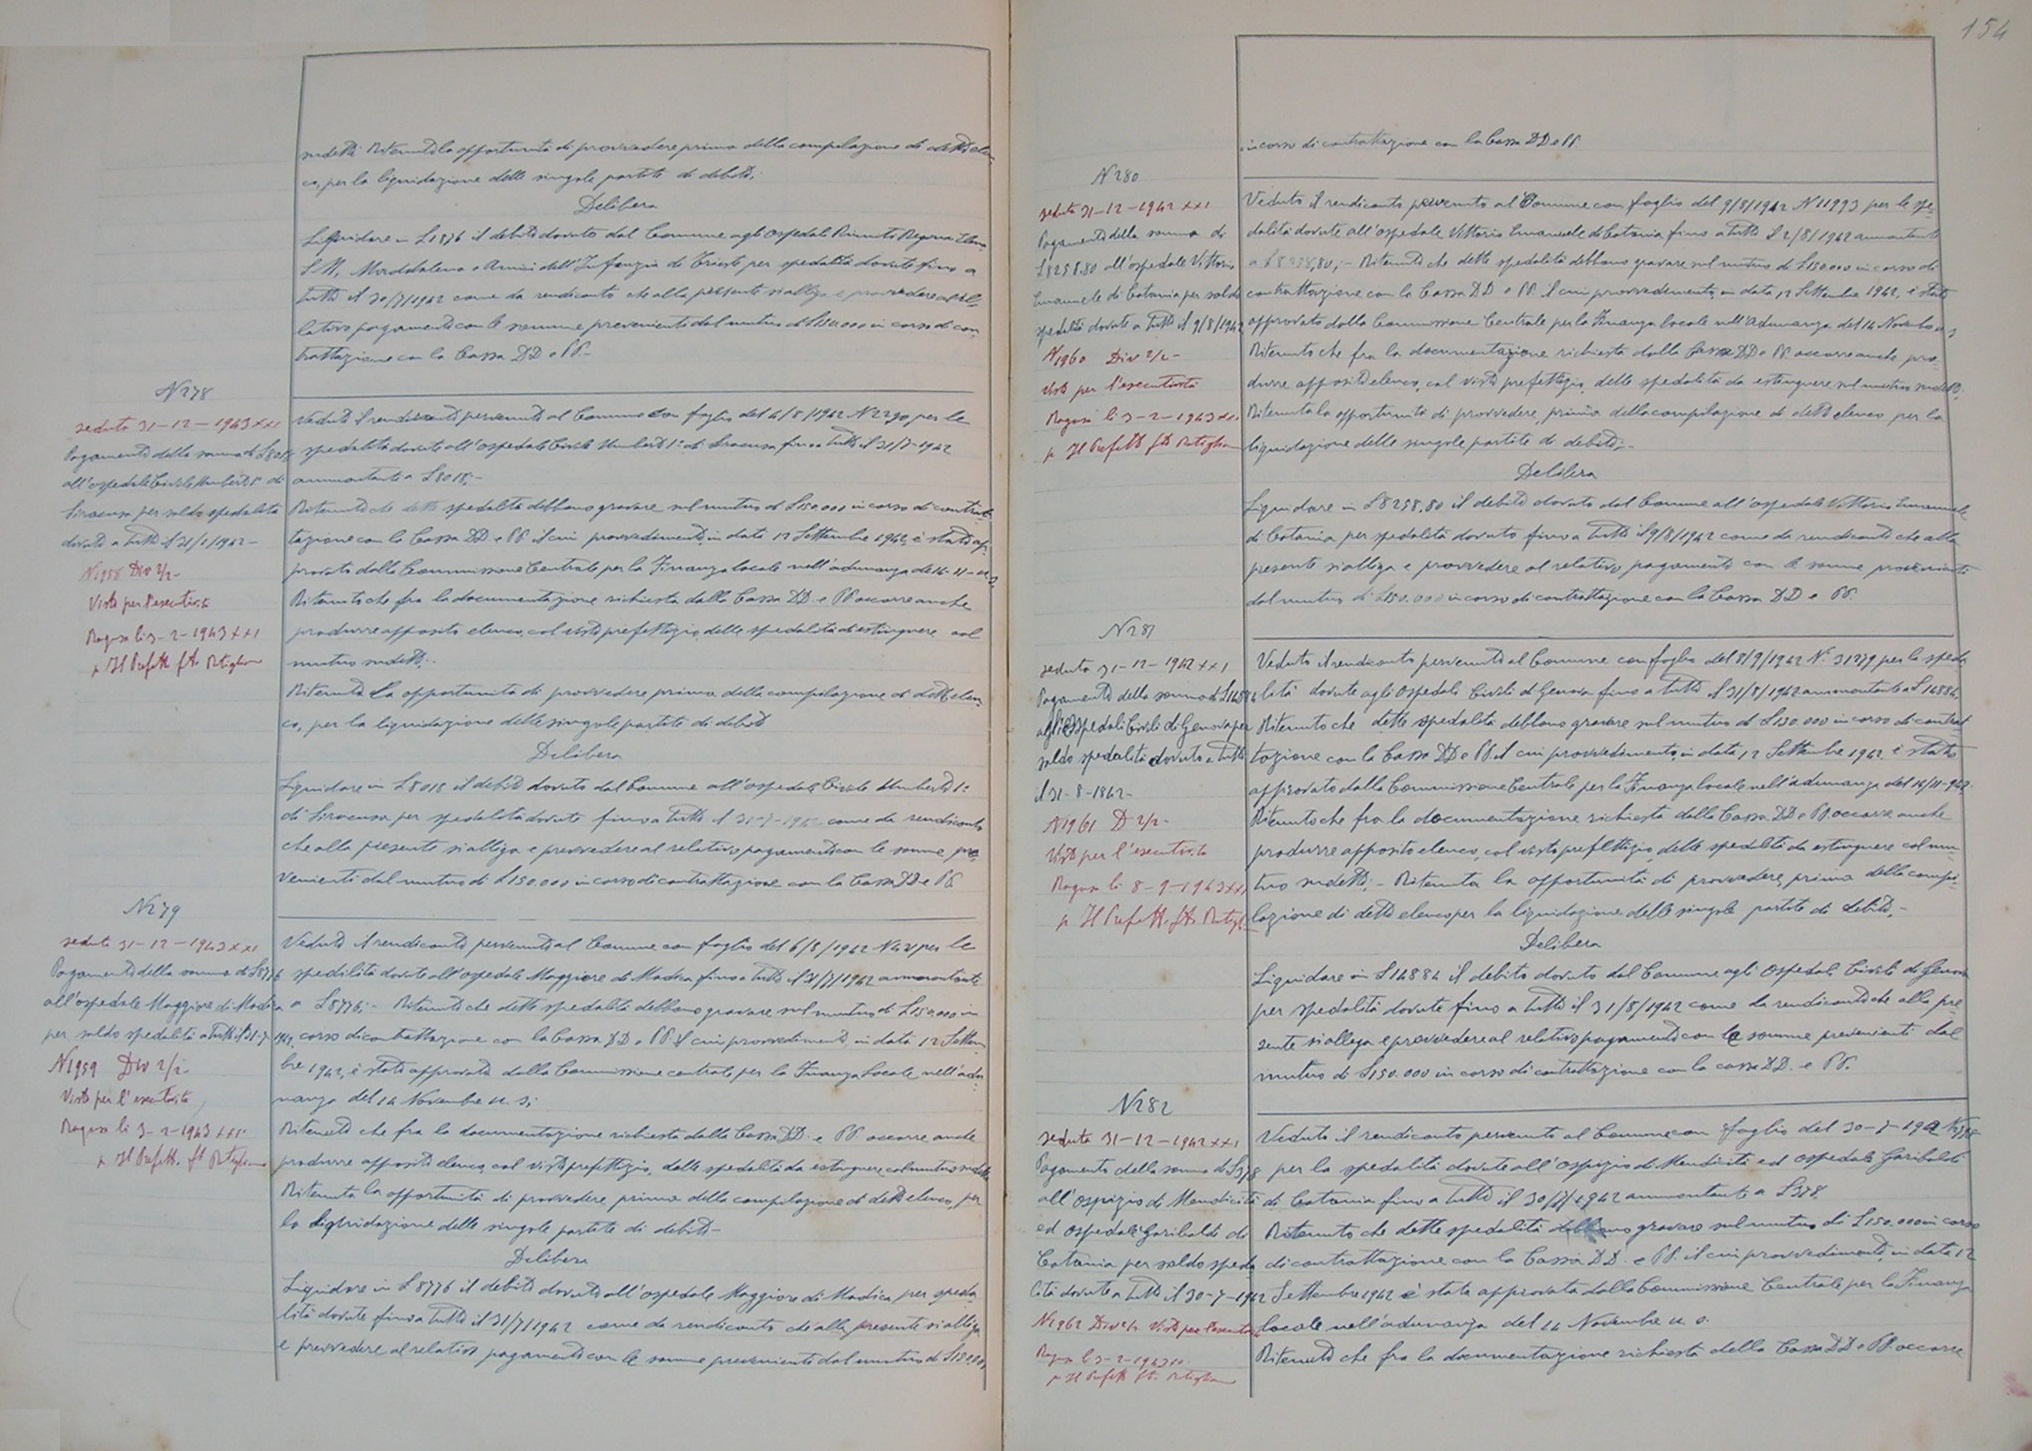 sudetti. Ritenuta la opportunità di provvedere prima della compilazione di detto elen-
co, per la liquidazione delle singole partite di debito;
Delibera
Liquidare in L 1876 il debito dovuto dal Comune agli Ospedali Riuniti Regina Elena
S. M. Maddalena e Amici dell'Infanzia di Trieste per spedalità dovute fino a
tutto il 30/7/1942 come da rendiconto che alla presente si allega e provvedere al re-
lativo pagamento con le somme provenienti dal mutuo di L 150.000 in corso di con
trattazione con la Cassa DD e PP.-
N 278
seduta 31-12-1943 XXI
Pagamento della somma di L 8018
all'ospedale Civile Umberto I° di
Siracusa per saldo spedalità
dovute a tutto il 31/7/1942-
N 1958 Div 2/2-
Visto per l'esecutività
Ragusa li 3-2-1943 XXI
p Il Prefetto fto
Veduto il rendiconto pervenuto al Comune con foglio del 4/8/1942 N 2290, per le
spedalità dovute all'ospedale Civile Umberto I° di Siracusa fino a tutto il 31/7-1942
ammontante a L 8018;-
Ritenuto che dette spedalità debbano gravare sul mutuo di L 150.000 in corso di contrat-
tazione con la Cassa DD e PP il cui provvedimento, in data 12 Settembre 1942, è stato ap-
provato dalla Commissione Centrale per la Finanza locale nell'adunanza del 14-11-u.s.
Ritenuto che fra la documentazione richiesta dalla Cassa DD e PP occorre anche
produrre apposito elenco, col visto prefettizio, delle spedalità da estinguere col
mutuo sudetto;-
Ritenuta la opportunità di provvedere prima della compilazione di detto elen-
co, per la liquidazione delle singole partite di debito
Delibera
Liquidare in L 8018 il debito dovuto dal Comune all'ospedale Civile Umberto I°
di Siracusa per spedalità dovute fino a tutto il 31-7-1942 come da rendiconto
che alla presente si allega e provvedere al relativo pagamento con le somme pro-
venienti dal mutuo di L 150.000 in corso di contrattazione con la Cassa DD e PP
N 279
seduta 31-12-1943 XXI
Pagamento della somma di L 8776
all'ospedale Maggiore di Modica
per saldo spedalità a tutto il 31-7-1942
N 1959 Div 2/2-
Visto per l'esecutività
Ragusa li 3-2-1943 XXI
p Il Prefetto ft
Veduto il rendiconto pervenuto al Comune con foglio del 6/8/1942 per le
spedalità dovute all'ospedale Maggiore di Modica fino a tutto il 31/7/1942 ammontante
a L 8776;- Ritenuto che dette spedalità debbano gravare sul mutuo di L 150.000 in
corso di contrattazione con la Cassa DD e PP il cui provvedimento, in data 12 Settem-
bre 1942, è stato approvato dalla Commissione centrale per la Finanza Locale nell'adu-
nanza del 14 Novembre u. s.;
Ritenuto che fra la documentazione richiesta dalla Cassa DD e PP occorre anche
produrre apposito elenco, col visto prefettizio, delle spedalità da estinguere col mutuo sudetto
Ritenuta la opportunità di provvedere prima della compilazione di detto elenco, per
la liquidazione delle singole partite di debito-
Delibera
Liquidare in L 8776 il debito dovuto all'ospedale Maggiore di Modica per speda-
lità dovute fino a tutto il 31/7/1942 come da rendiconto che alla presente si allega
e provvedere al relativo pagamento con le somme provenienti dal mutuo di L 150.000,
154
in corso di contrattazione con la Cassa DD e PP
N 280
seduta 31-12-1942 XXI
Pagamento della somma di
L 8258.80 all'ospedale Vittorio
Emanuele di Catania per saldo
spedalità dovute a tutto il 9/8/1942
N 1960 Div 2/2-
Visto per l'esecutività
Ragusa li 3-2-1943 XXI
p Il Prefetto fto
Veduto il rendiconto pervenuto al Comune con foglio del 9/8/1942 N 11993 per le spe-
dalità dovute all'ospedale Vittorio Emanuele di Catania fino a tutto il 2/8/1942 ammontante
a L 8258,80;- Ritenuto che dette spedalità debbano gravare sul mutuo di L 150.000 in corso di
contrattazione con la Cassa DD e PP. il cui provvedimento, in data 12 Settembre 1942, è stato
approvato dalla Commissione Centrale per la Finanza locale nell'adunanza del 14 Novembre u.s
Ritenuto che fra la documentazione richiesta dalla Cassa DD e PP occorre anche pro-
durre apposito elenco, col visto prefettizio, delle spedalità da estinguere sul mutuo sudetto,
Ritenuta la opportunità di provvedere, prima della compilazione di detto elenco per la
liquidazione delle singole partite di debito;-
Delibera
Liquidare in L 8258.80 il debito dovuto dal Comune all'ospedale Vittorio Emanuele
di Catania per spedalità dovute fino a tutto il 9/8/1942 come da rendiconto che alla
presente si allega e provvedere al relativo pagamento con le somme provenienti
dal mutuo di L 150.000 in corso di contrattazione con la Cassa DD e PP.
N 281
seduta 31-12-1942 XXI
Pagamento della somma di L 14884
agli Ospedali Civili di Genova per
saldo spedalità dovute a tutto
il 31-8-1842-
N 1961 D 2/2-
Visto per l'esecutività
Ragusa li 8-9-1943 XXI
p Il Prefetto fto
Veduto il rendiconto pervenuto al Comune con foglio del 8/9/1942 N° 31279 per le speda
lità dovute agli Ospedali Civili di Genova fino a tutto il 31/8/1942 ammontante a L 14884
Ritenuto che dette spedalità debbano gravare sul mutuo di L 150.000 in corso di contrat
tazione con la Cassa DD e PP il cui provvedimento, in data 12 Settembre 1942. è stato
approvato dalla Commissione Centrale per la Finanza locale nell'adunanza del 14/11-942
Ritenuto che fra la documentazione richiesta dalla Cassa DD e PP. occorre anche
produrre apposito elenco, col visto prefettizio, delle spedalità da estinguere col mu-
tuo sudetto;- Ritenuta la opportunità di provvedere, prima della compi-
lazione di detto elenco per la liquidazione delle singole partite di debito,-
Delibera
Liquidare in L 14884 il debito dovuto dal Comune agli Ospedali Civili di Genova
per spedalità dovute fino a tutto il 31/8/1942 come da rendiconto che alla pre-
sente si allega e provvedere al relativo pagamento con le somme provenienti dal
mutuo di L 150.000 in corso di contrattazione con la cassa DD. e PP.
N 282
seduta 31-12-1942 XXI
Pagamento della somma di L 378
all'ospizio di Mendicità
ed ospedale Garibaldi di
Catania per saldo speda
lità dovute a tutto il 30-7-1942
N 1962 Div 2/2 Visto per l'esecutività
Ragusa li 3-2-1943 XXI
p Il Prefetto ft.
Veduto il rendiconto pervenuto al Comune con foglio del 30-7-1942
per la spedalità dovute all'ospizio di Mendicità ed ospedale Garibaldi
di Catania fino a tutto il 30/7/1942 ammontante a L 378.
Ritenuto che dette spedalità debbano gravare sul mutuo di L 150.000 in corso
di contrattazione con la Cassa DD. e PP. il cui provvedimento, in data 12
Settembre 1942 è stata approvata dalla Commissione Centrale per la Finanza
locale nell'adunanza del 14 Novembre u. s.
Ritenuto che fra la documentazione richiesta della Cassa DD e PP occorre